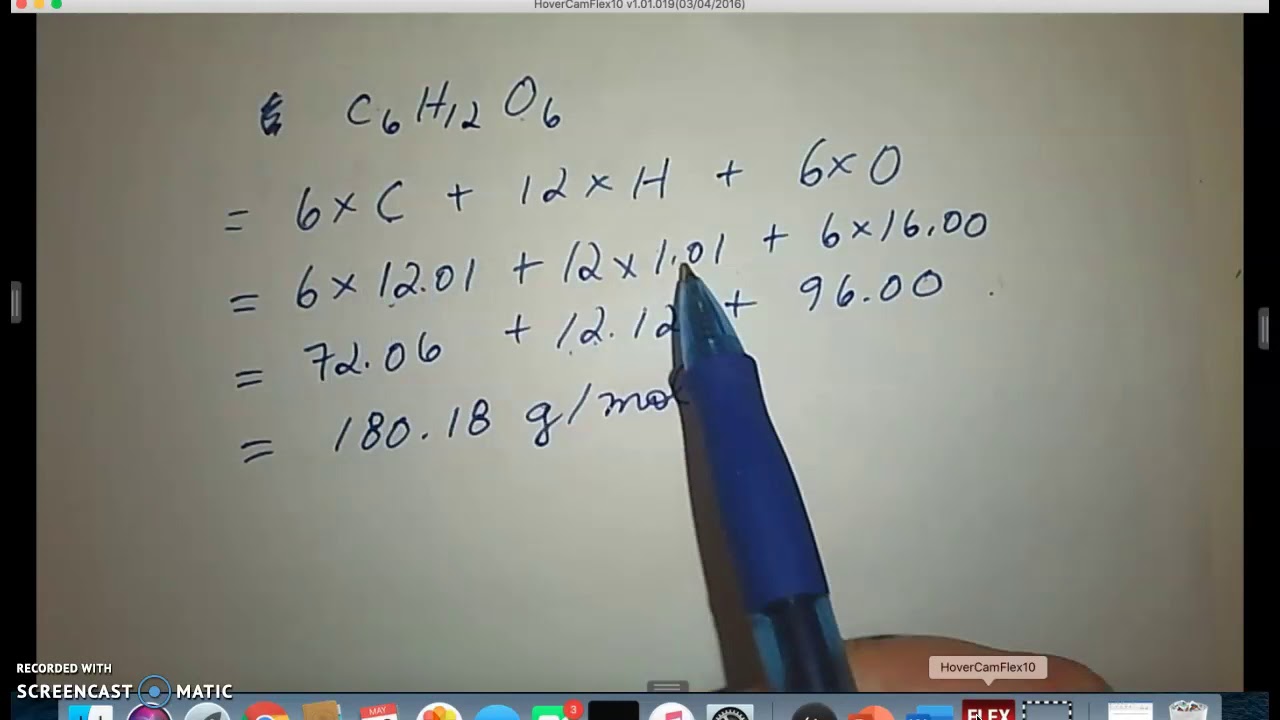 HoverCamFlex10 v1.01.019(03/04/2016)
C₆H₁₂O₆
= 6×C + 12×H + 6×O
= 6×12.01 + 12×1.01 + 6×16.00
= 72.06 + 12.12 + 96.00
= 180.18 g/mol
RECORDED WITH
SCREENCAST MATIC
HoverCamFlex10
MAY
3
FLEX